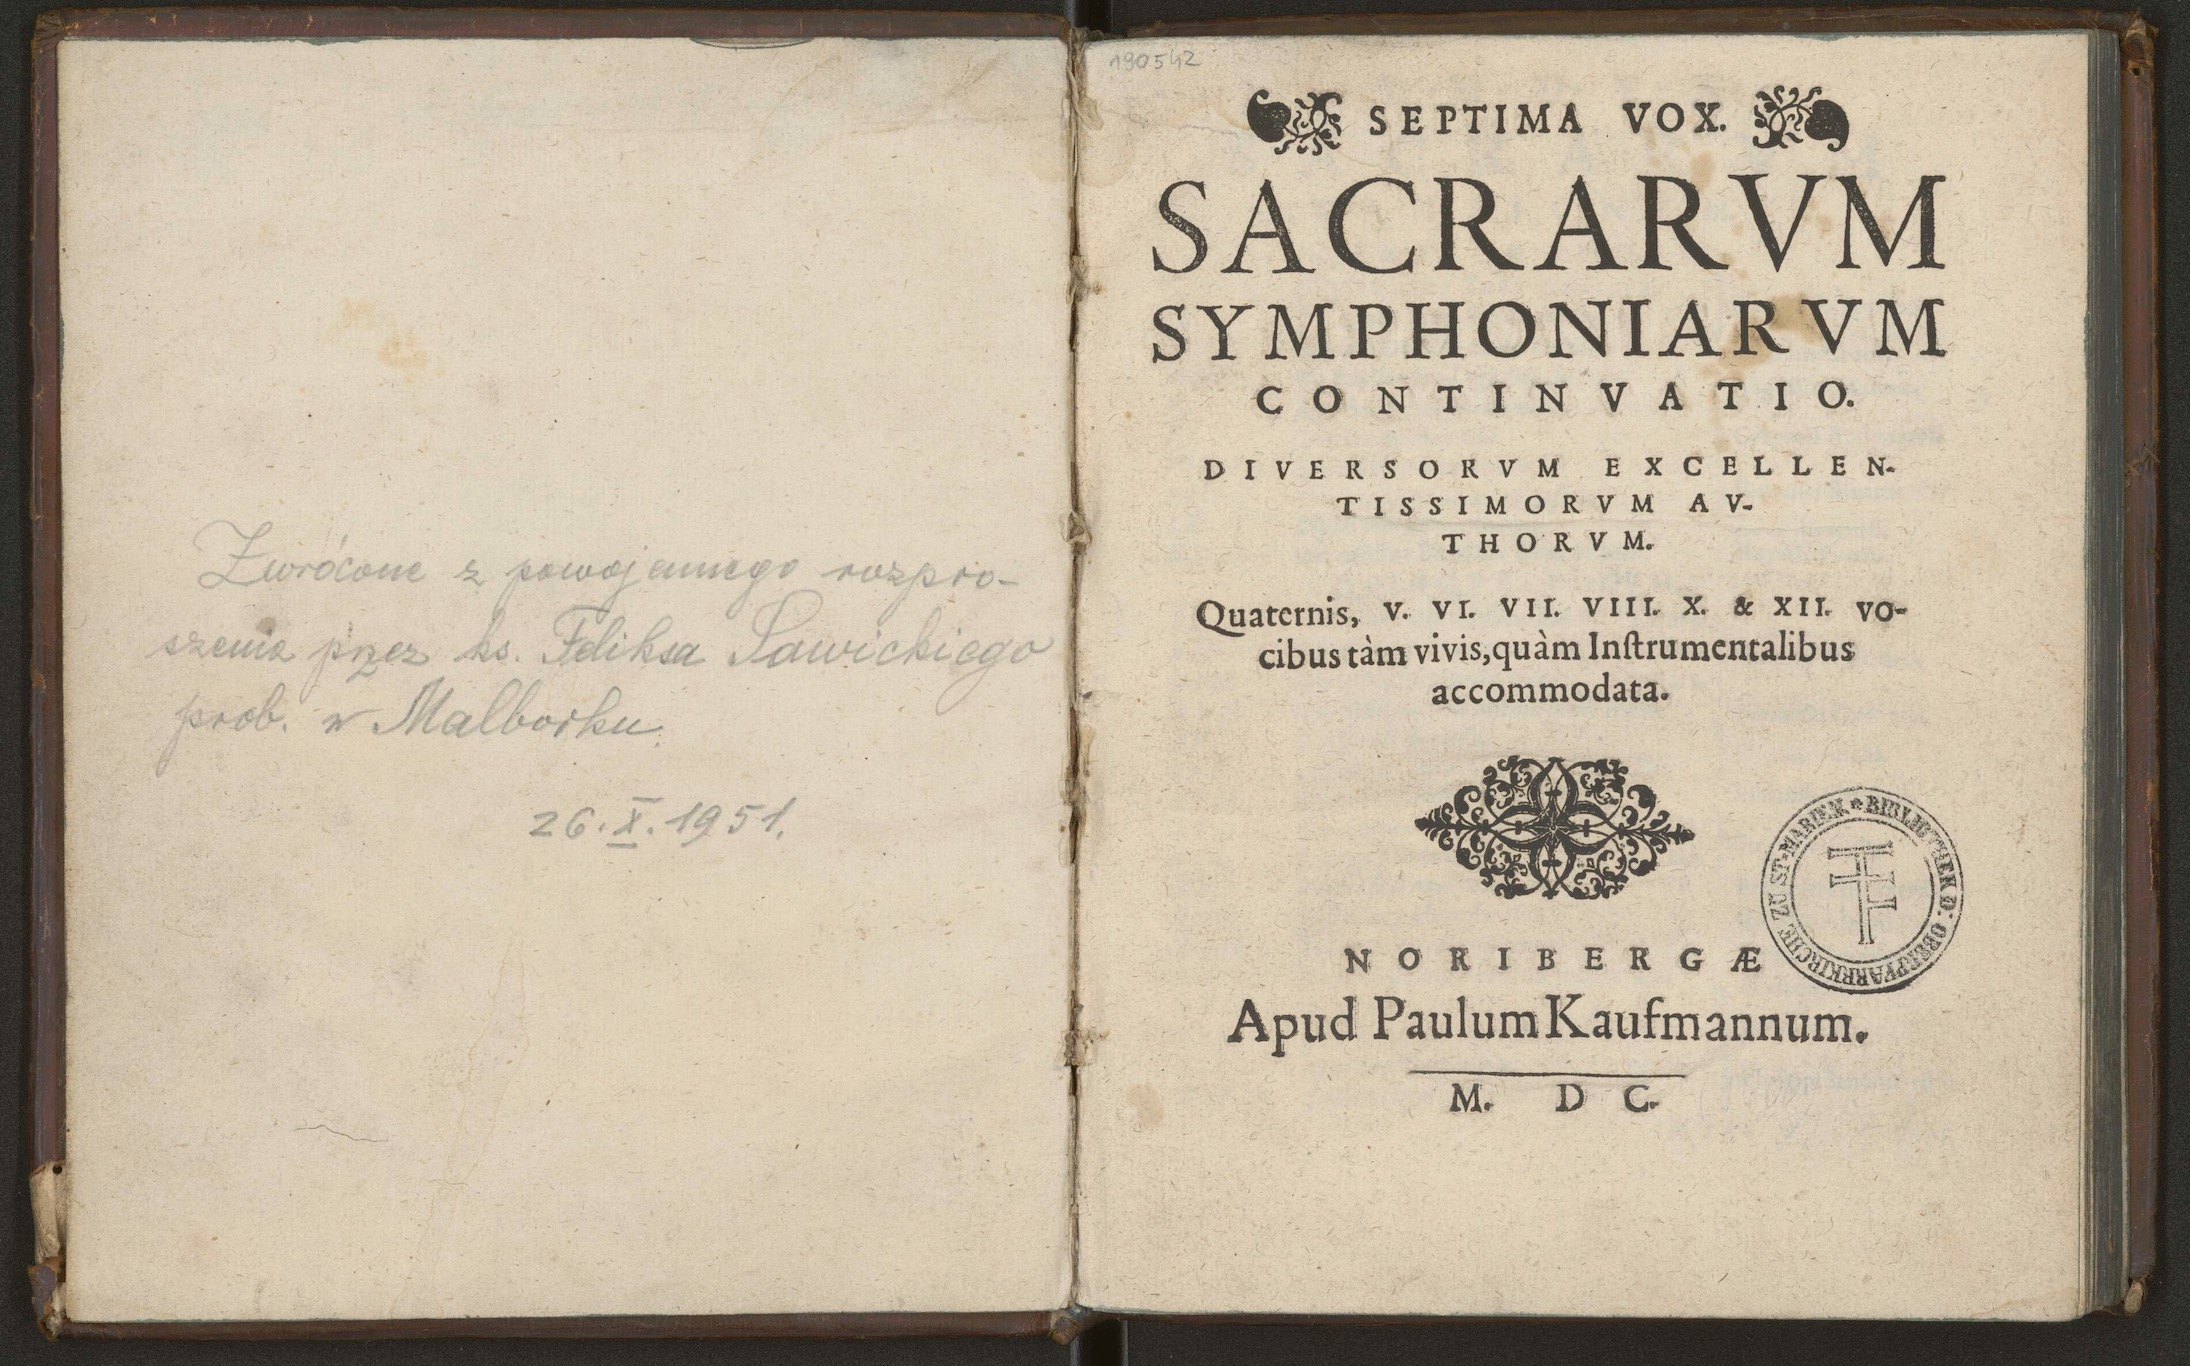 Zwrócone z powojennego rozpro-
szenia przez ks. Feliksa Sawickiego
prob. w Malborku.
26.X.1951.
190542
SEPTIMA VOX.
SACRARVM
SYMPHONIARVM
CONTINVATIO.
DIVERSORVM EXCELLEN-
TISSIMORVM AV-
THORVM.
Quaternis, V. VI. VII. VIII. X. & XII. VO-
cibus tàm vivis, quàm Inſtrumentalibus
accommodata.
BIBLIOTHEK D: OBERPFARRKIRCHE ZU ST. MARIEN
NORIBERGÆ
Apud Paulum Kaufmannum.
M. D C.